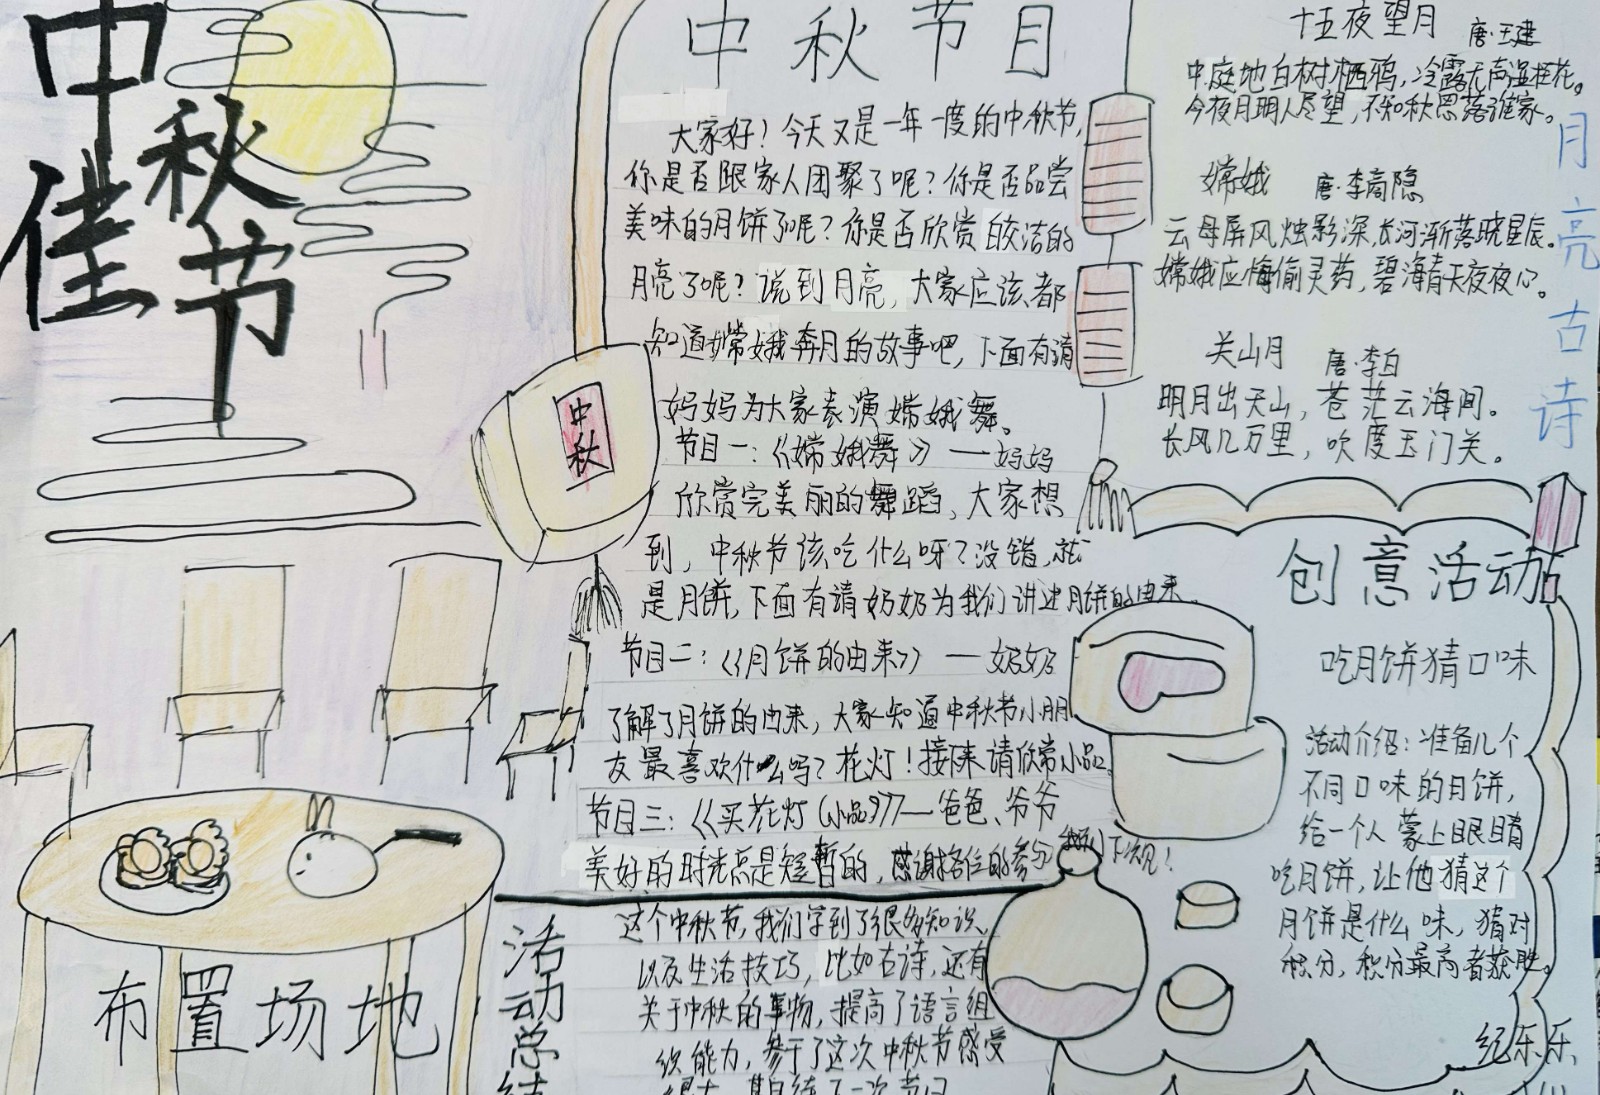 中秋节
佳节
中秋节目
大家好！今天又是一年一度的中秋节，
你是否跟家人团聚了呢？你是否品尝
美味的月饼了呢？你是否欣赏皎洁的
月亮了呢？说到月亮，大家应该都
知道嫦娥奔月的故事吧，下面有请
妈妈为大家表演嫦娥舞。
节目一：《嫦娥舞》—妈妈
欣赏完美丽的舞蹈，大家想
到，中秋节该吃什么呀？没错，就
是月饼，下面有请奶奶为我们讲述月饼的由来。
节目二：《月饼的由来》—奶奶
了解了月饼的由来，大家知道中秋节小朋
友最喜欢什么吗？花灯！接下来请欣常小品。
节目三：《买花灯（小品）》—爸爸、爷爷
美好的时光总是短暂的，感谢各位的参与 我们下次见！
中秋
十五夜望月 唐·王建
中庭地白树栖鸦，冷露无声湿桂花。
今夜月明人尽望，不知秋思落谁家。
嫦娥 唐·李商隐
云母屏风烛影深，长河渐落晓星辰。
嫦娥应悔偷灵药，碧海青天夜夜心。
关山月 唐·李白
明月出天山，苍茫云海间。
长风几万里，吹度玉门关。
月亮古诗
创意活动
吃月饼猜口味
活动介绍：准备几个
不同口味的月饼，
给一个人蒙上眼睛
吃月饼，让他猜这个
月饼是什么味，猜对
积分，积分最高者获胜。
纪乐乐
布置场地
活动总结
这个中秋节，我们学到了很多知识，
以及生活技巧，比如古诗，还有
关于中秋的事物，提高了语言组
织能力，参于了这次中秋节感受